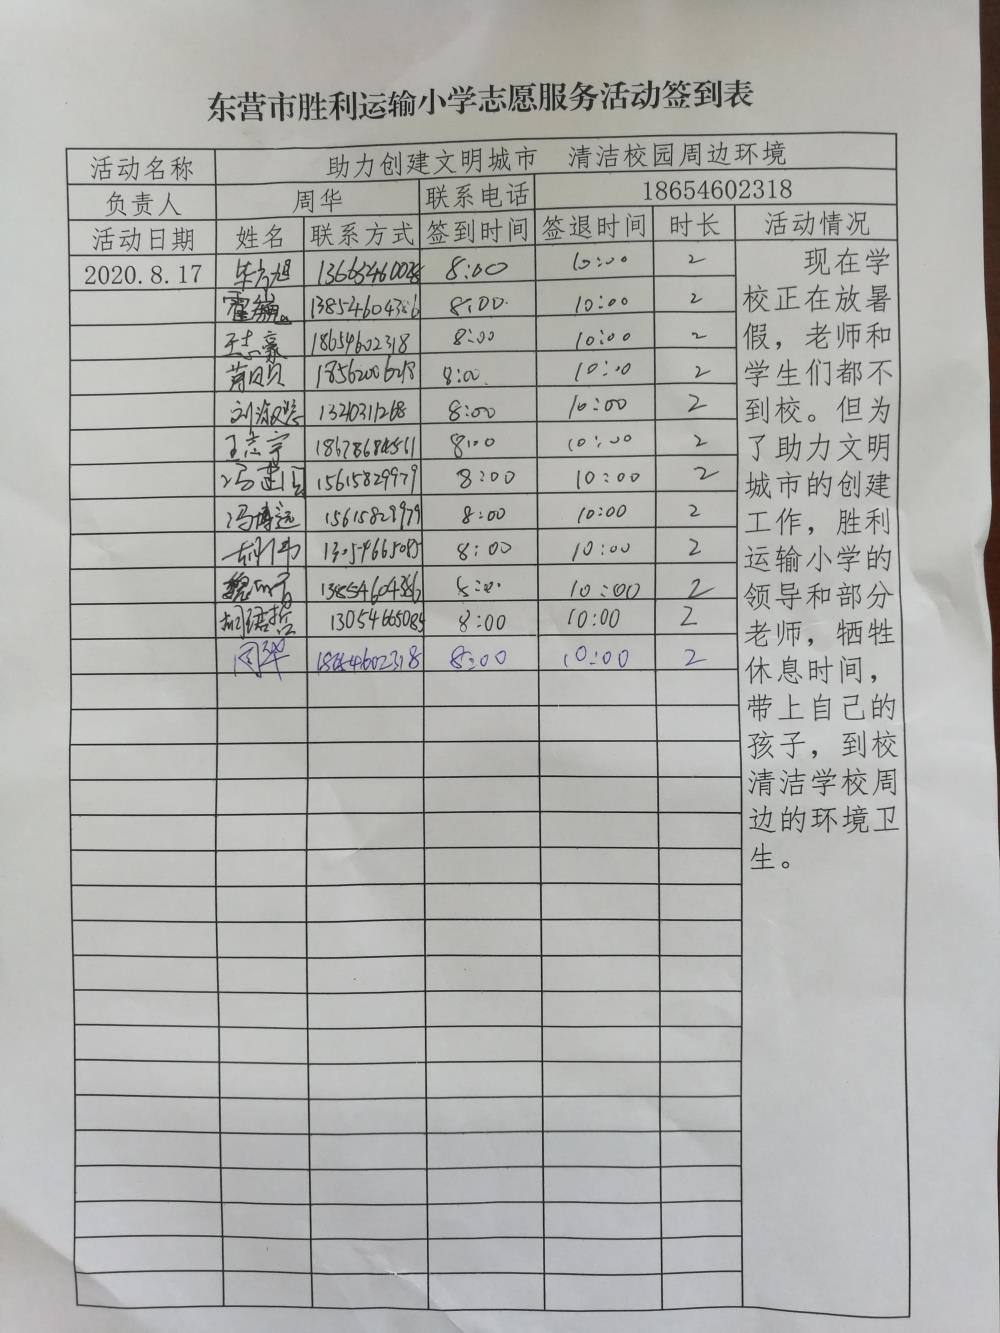 东营市胜利运输小学志愿服务活动签到表
活动名称 助力创建文明城市 清洁校园周边环境
负责人 周华 联系电话 18654602318
活动日期 姓名 联系方式 签到时间 签退时间 时长 活动情况
2020.8.17 8:00 10:00 2
13854604386 8:00 10:00 2
王志豪 18654602318 8:00 10:00 2
8:00 10:00 2
8:00 10:00 2
王志宇 8:00 10:00 2
15615829979 8:00 10:00 2
冯博远 15615829979 8:00 10:00 2
胡伟 13054665085 8:00 10:00 2
13854604386 8:00 10:00 2
13054665085 8:00 10:00 2
周华 18654602318 8:00 10:00 2
现在学
校正在放暑
假，老师和
学生们都不
到校。但为
了助力文明
城市的创建
工作，胜利
运输小学的
领导和部分
老师，牺牲
休息时间，
带上自己的
孩子，到校
清洁学校周
边的环境卫
生。